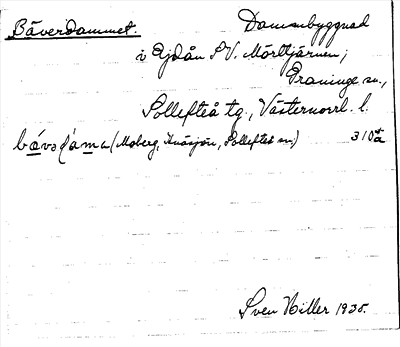 Bäverdammet. Dammbyggnad
i Ejdån S V. Mörttjärnen;
Graninge sn.,
Sollefteå tg., Västernorrl. l.
(Moberg, Knäsjön, Sollefteå sn) 310
Sven Hiller 1935.